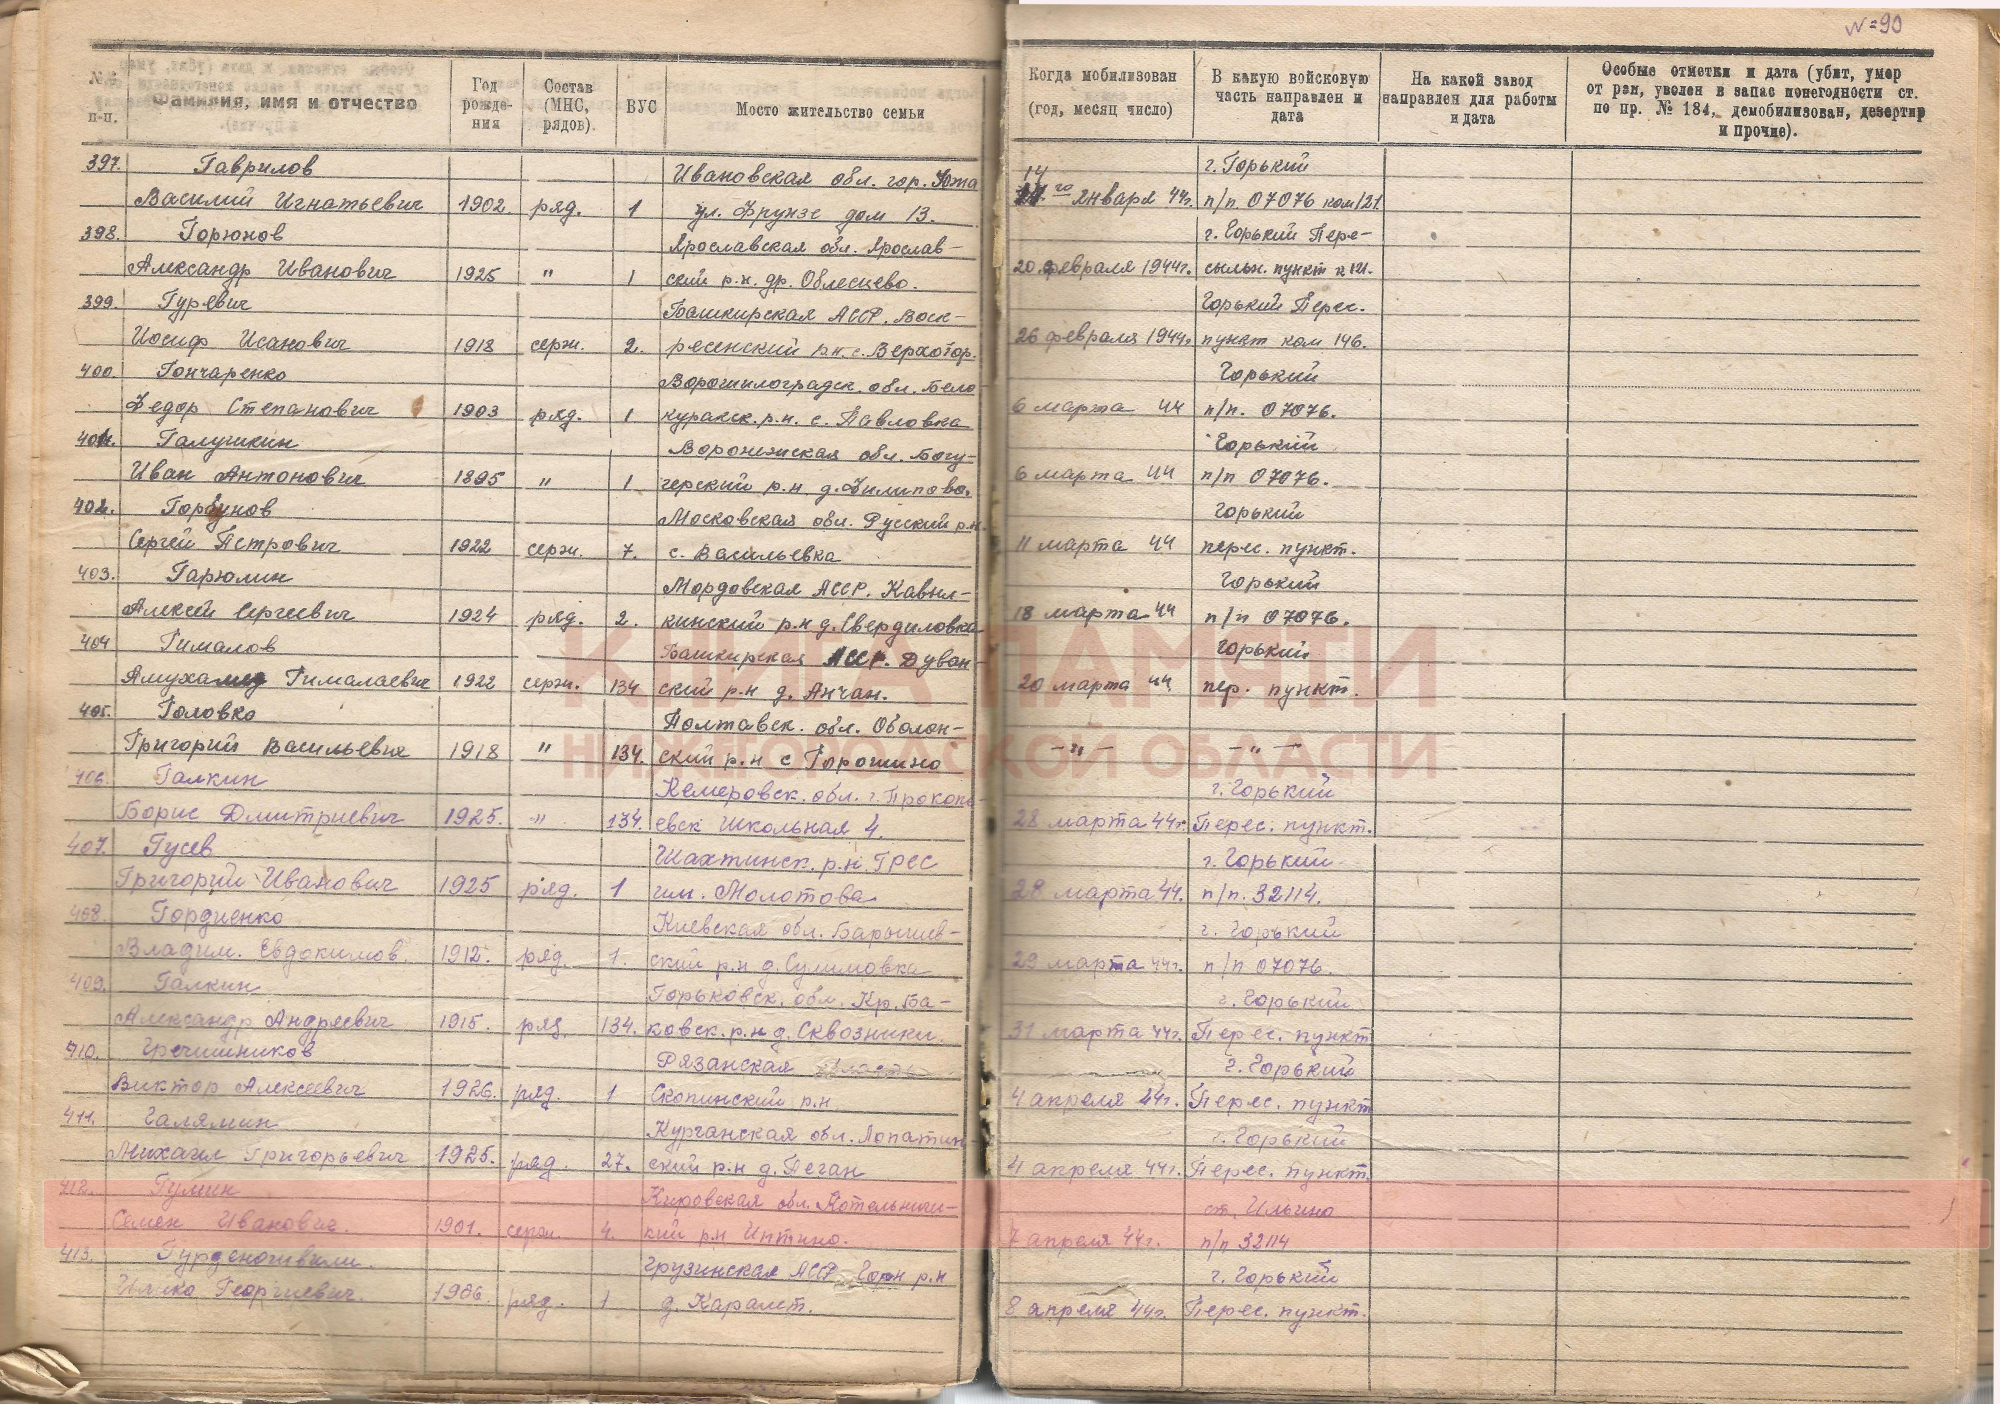 №=90
№№ п-п.
Фамилия, имя и отчество
Год рождения
Состав (МНС, рядов).
ВУС
Мосто жительство семьи
Когда мобилизован (год, месяц число)
В какую войсковую часть направлен и дата
На какой завод направлен для работы и дата
Особые отметки и дата (убит, умер от ран, уволен в запас понегодности ст. по пр. № 184, демобилизован, дезертир и прочие).
397. Гаврилов Ивановская обл. гор. Южа 14 г. Горький
Василий Игнатьевич 1902 ряд. 1 ул. Фрунзе дом 13. го января 44г. п/п. 07076 ком 121
398. Горюнов Ярославская обл. Ярослав- г. Горький Пере-
Александр Иванович 1925 " 1 ский р.н. др. 20 февраля 1944г. сыльн. пункт к 121.
399. Гуревич Башкирская АССР. Воск- Горький Перес.
Иосиф Исакович 1918 серж. 2. ресенский р.н. с. Верхотор. 26 февраля 1944г. пункт ком 146.
400. Гончаренко Ворошилоградск. обл. Бело- Горький
Федор Степанович 1903 ряд. 1 куракск. р.н. с. Павловка 6 марта 44 п/п. 07076.
401. Галушкин Воронежская обл. Богу- Горький
Иван Антонович 1895 " 1 черский р.н д. Филипово. 6 марта 44 п/п 07076.
402. Горбунов Московская обл. Русский р.н. Горький
Сергей Петрович 1922 серж. 7. с. Васильевка 11 марта 44 перес. пункт.
403. Гарюлин Мордовская АССР. Кавыл- Горький
Алексей Сергеевич 1924 ряд. 2. кинский р.н д. Свердиловка 18 марта 44 п/п 07076.
404 Гималов Башкирская АССР. Дуван- Горький
Гималаевич 1922 серж. 134 ский р-н д. Анчан. 20 марта 44 пер. пункт.
405. Головко Полтавск. обл. Оболон-
Григорий Васильевич 1918 " 134. ский р.н с Горошино -"- -"-
406. Галкин Кемеровск. обл. г. Прокопь- г. Горький
Борис Дмитриевич 1925. -"- 134. евск Школьная 4. 28 марта 44г. Перес. пункт.
407. Гусев Шахтинск. р.н. ГРЕС г. Горький
Григорий Иванович 1925 ряд. 1 им. Молотова 28 марта 44. п/п. 32114.
408. Гордиенко Киевская обл. Барышев- г. Горький
Владим. Евдокимов. 1912. ряд. 1. ский р.н д. Сулимовка 29 марта 44г. п/п 07076.
409. Галкин Горьковск. обл. Кр. Ба- г. Горький
Александр Андреевич 1915. ряд. 134. ковск. р.н д. Сквозники. 31 марта 44г. Перес. пункт
410. Гречишников Рязанская область г. Горький
Виктор Алексеевич 1926. ряд. 1 Скопинский р.н 4 апреля 44г. Перес. пункт
411. Галямин Курганская обл. Лопатин- г. Горький
Михаил Григорьевич 1925. ряд. 27. ский р.н д. Пеган 4 апреля 44г. Перес. пункт.
412. Гумин Кировская обл. Котельнич- ст. Ильино
Семен Иванович. 1901. серж. 4. кий р.н Интино. 7 апреля 44г. п/п 32114
413. Грузинская АССР Гори р.н г. Горький
Георгиевич. ряд. 1 д. Каралет. 8 апреля 44г. Перес. пункт.
КНИГА ПАМЯТИ
НИЖЕГОРОДСКОЙ ОБЛАСТИ